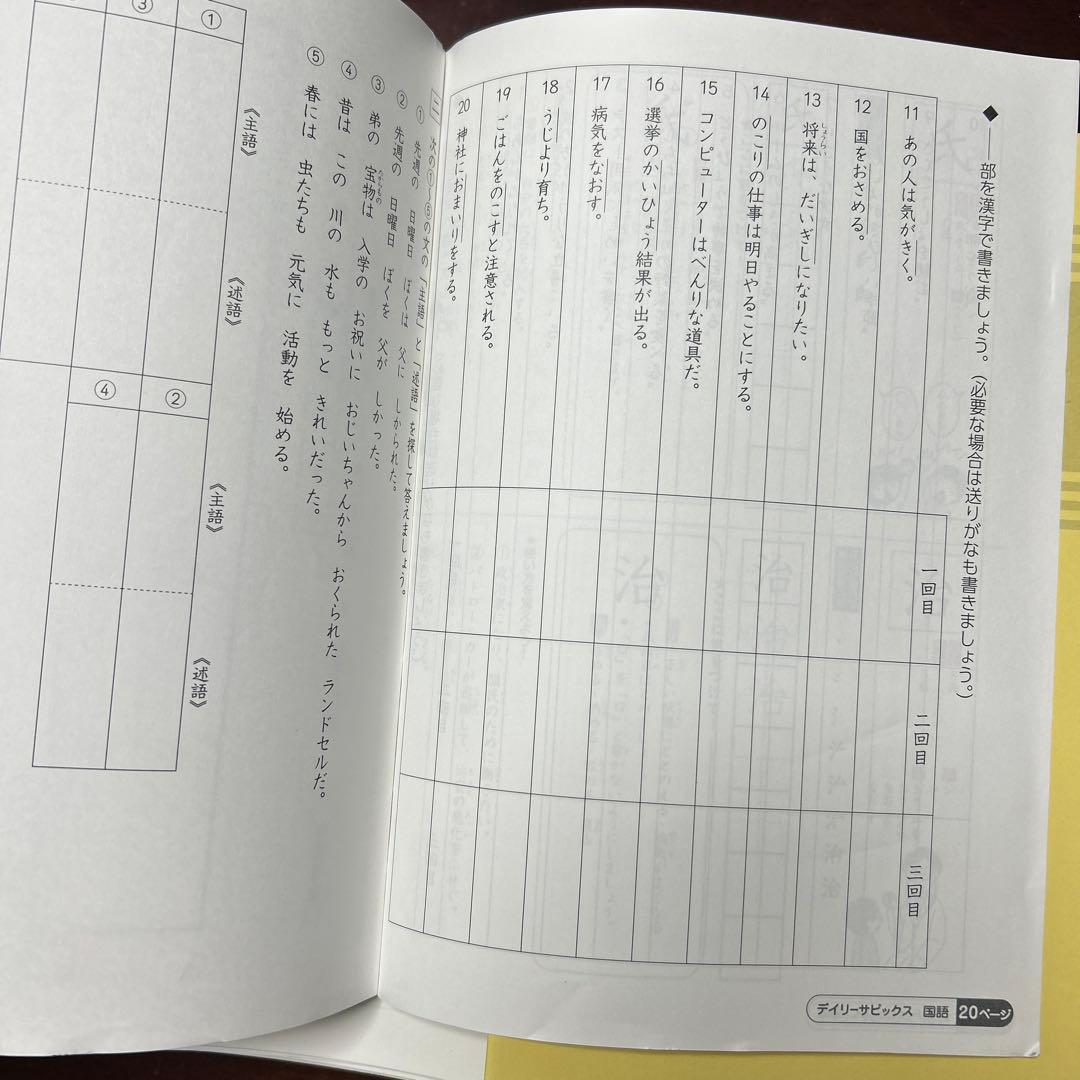 ◆――部を漢字で書きましょう。（必要な場合は送りがなも書きましょう。）
一回目
二回目
三回目
11 あの人は気がきく。
12 国をおさめる。
13 将来は、だいぎしになりたい。
しょうらい
14 のこりの仕事は明日やることにする。
15 コンピューターはべんりな道具だ。
16 選挙のかいひょう結果が出る。
17 病気をなおす。
18 うじより育ち。
19 ごはんをのこすと注意される。
20 神社におまいりをする。
デイリーサピックス 国語 20ページ
二 次の①〜⑤の文の「主語」と「述語」を探して答えましょう。
① 先週の 日曜日 ぼくは 父に しかられた。
② 先週の 日曜日 ぼくを 父が しかった。
③ 弟の 宝物は 入学の お祝いに おじいちゃんから おくられた ランドセルだ。
たからもの
④ 昔は この 川の 水も もっと きれいだった。
⑤ 春には 虫たちも 元気に 活動を 始める。
《主語》
《述語》
《主語》
《述語》
①
②
③
④